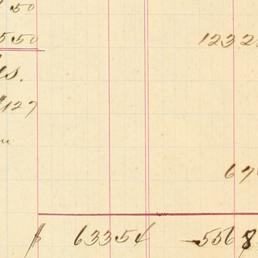 50
550 1232
es.
$127
67
$ 633 54 5568